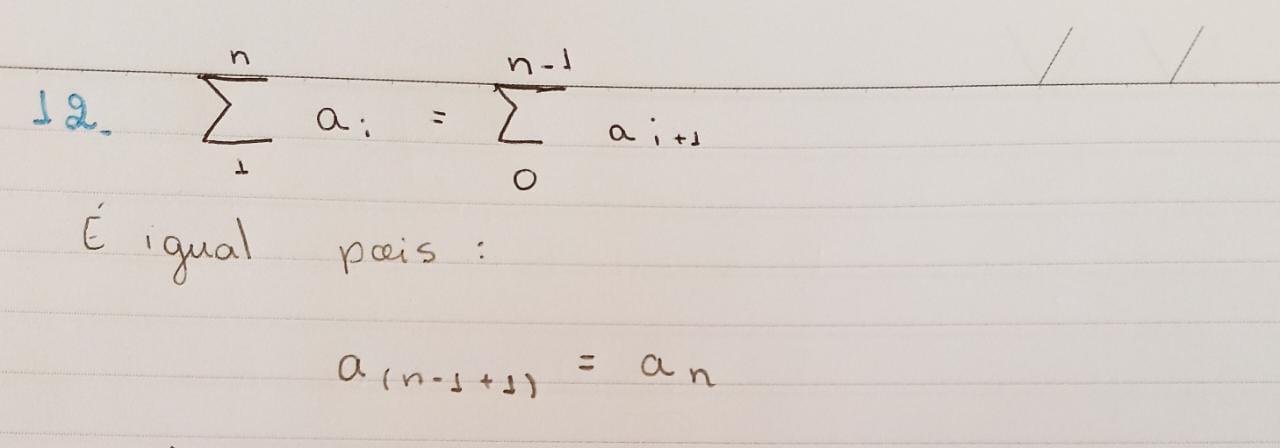 12. $\sum_{1}^{n} a_i = \sum_{0}^{n-1} a_{i+1}$
É igual pois :
$a_{(n-1+1)} = a_n$